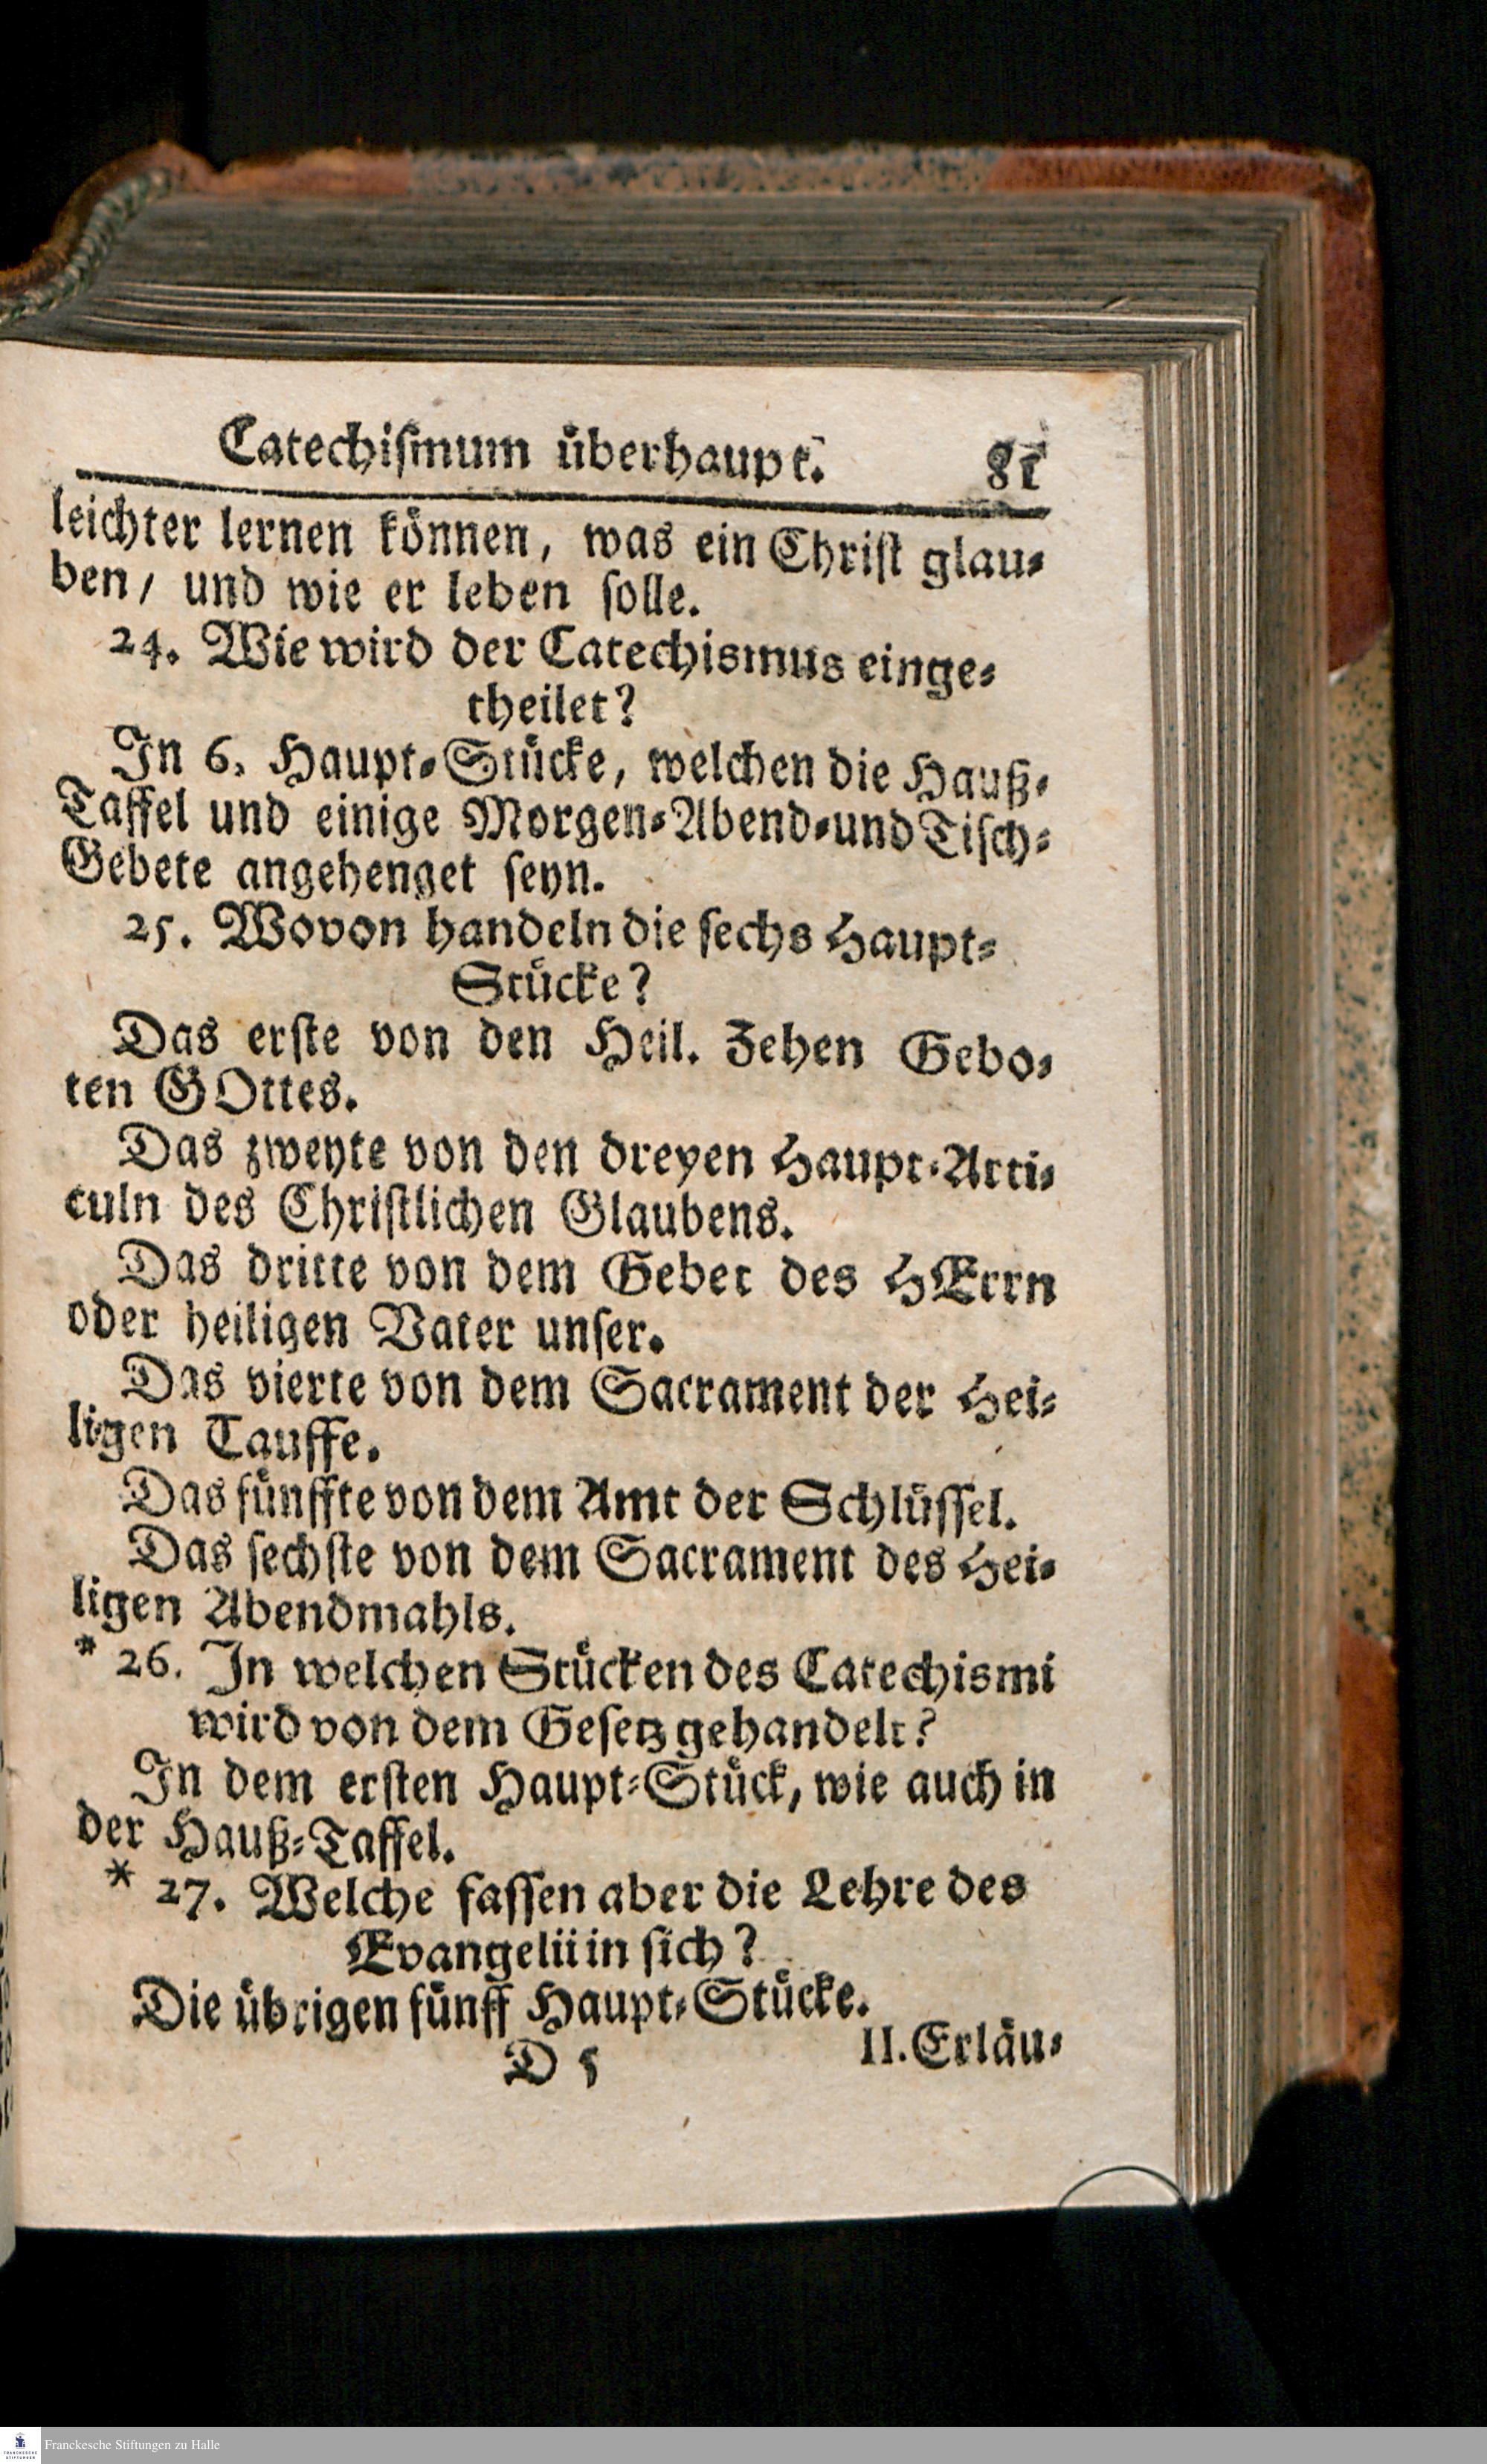 Catechiſmum überhaupt. 81
leichter lernen können, was ein Chriſt glau⸗
ben / und wie er leben ſolle.
24. Wie wird der Catechismus einge⸗
theilet?
In 6. Haupt⸗Stücke, welchen die Hauß⸗
Taffel und einige Morgen⸗Abend⸗und Tiſch⸗
Gebete angehenget ſeyn.
25. Wovon handeln die ſechs Haupt⸗
Stücke?
Das erſte von den Heil. Zehen Gebo⸗
ten GOttes.
Das zweyte von den dreyen Haupt⸗Arti⸗
culn des Chriſtlichen Glaubens.
Das dritte von dem Gebet des HErrn
oder heiligen Vater unſer.
Das vierte von dem Sacrament der Hei⸗
ligen Tauffe.
Das fünffte von dem Amt der Schlüſſel.
Das ſechſte von dem Sacrament des Hei⸗
ligen Abendmahls.
* 26. In welchen Stücken des Catechismi
wird von dem Geſetz gehandelt?
In dem erſten Haupt⸗Stück, wie auch in
der Hauß⸗Taffel.
* 27. Welche faſſen aber die Lehre des
Evangelii in ſich?
Die übrigen fünff Haupt⸗Stücke.
D 5 II. Erläu⸗
FRANCKESCHE STIFTUNGEN
Franckesche Stiftungen zu Halle